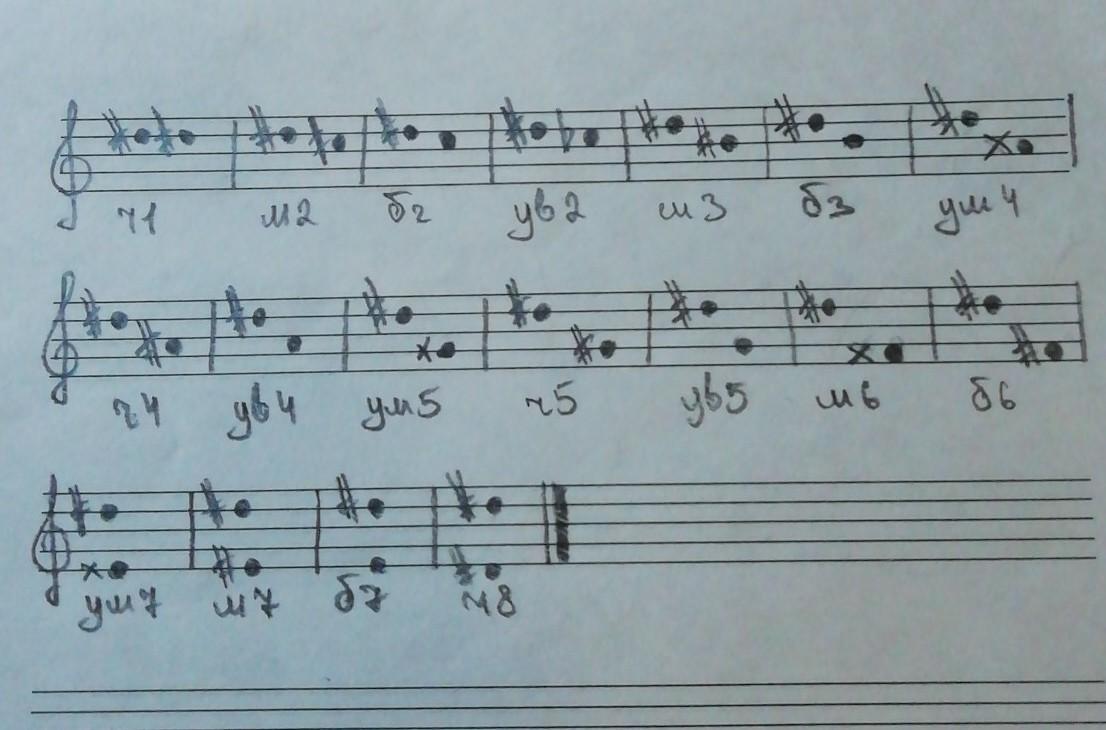 ч1 м2 б2 ув2 м3 б3 ум4
ч4 ув4 ум5 ч5 ув5 м6 б6
ум7 м7 б7 ч8